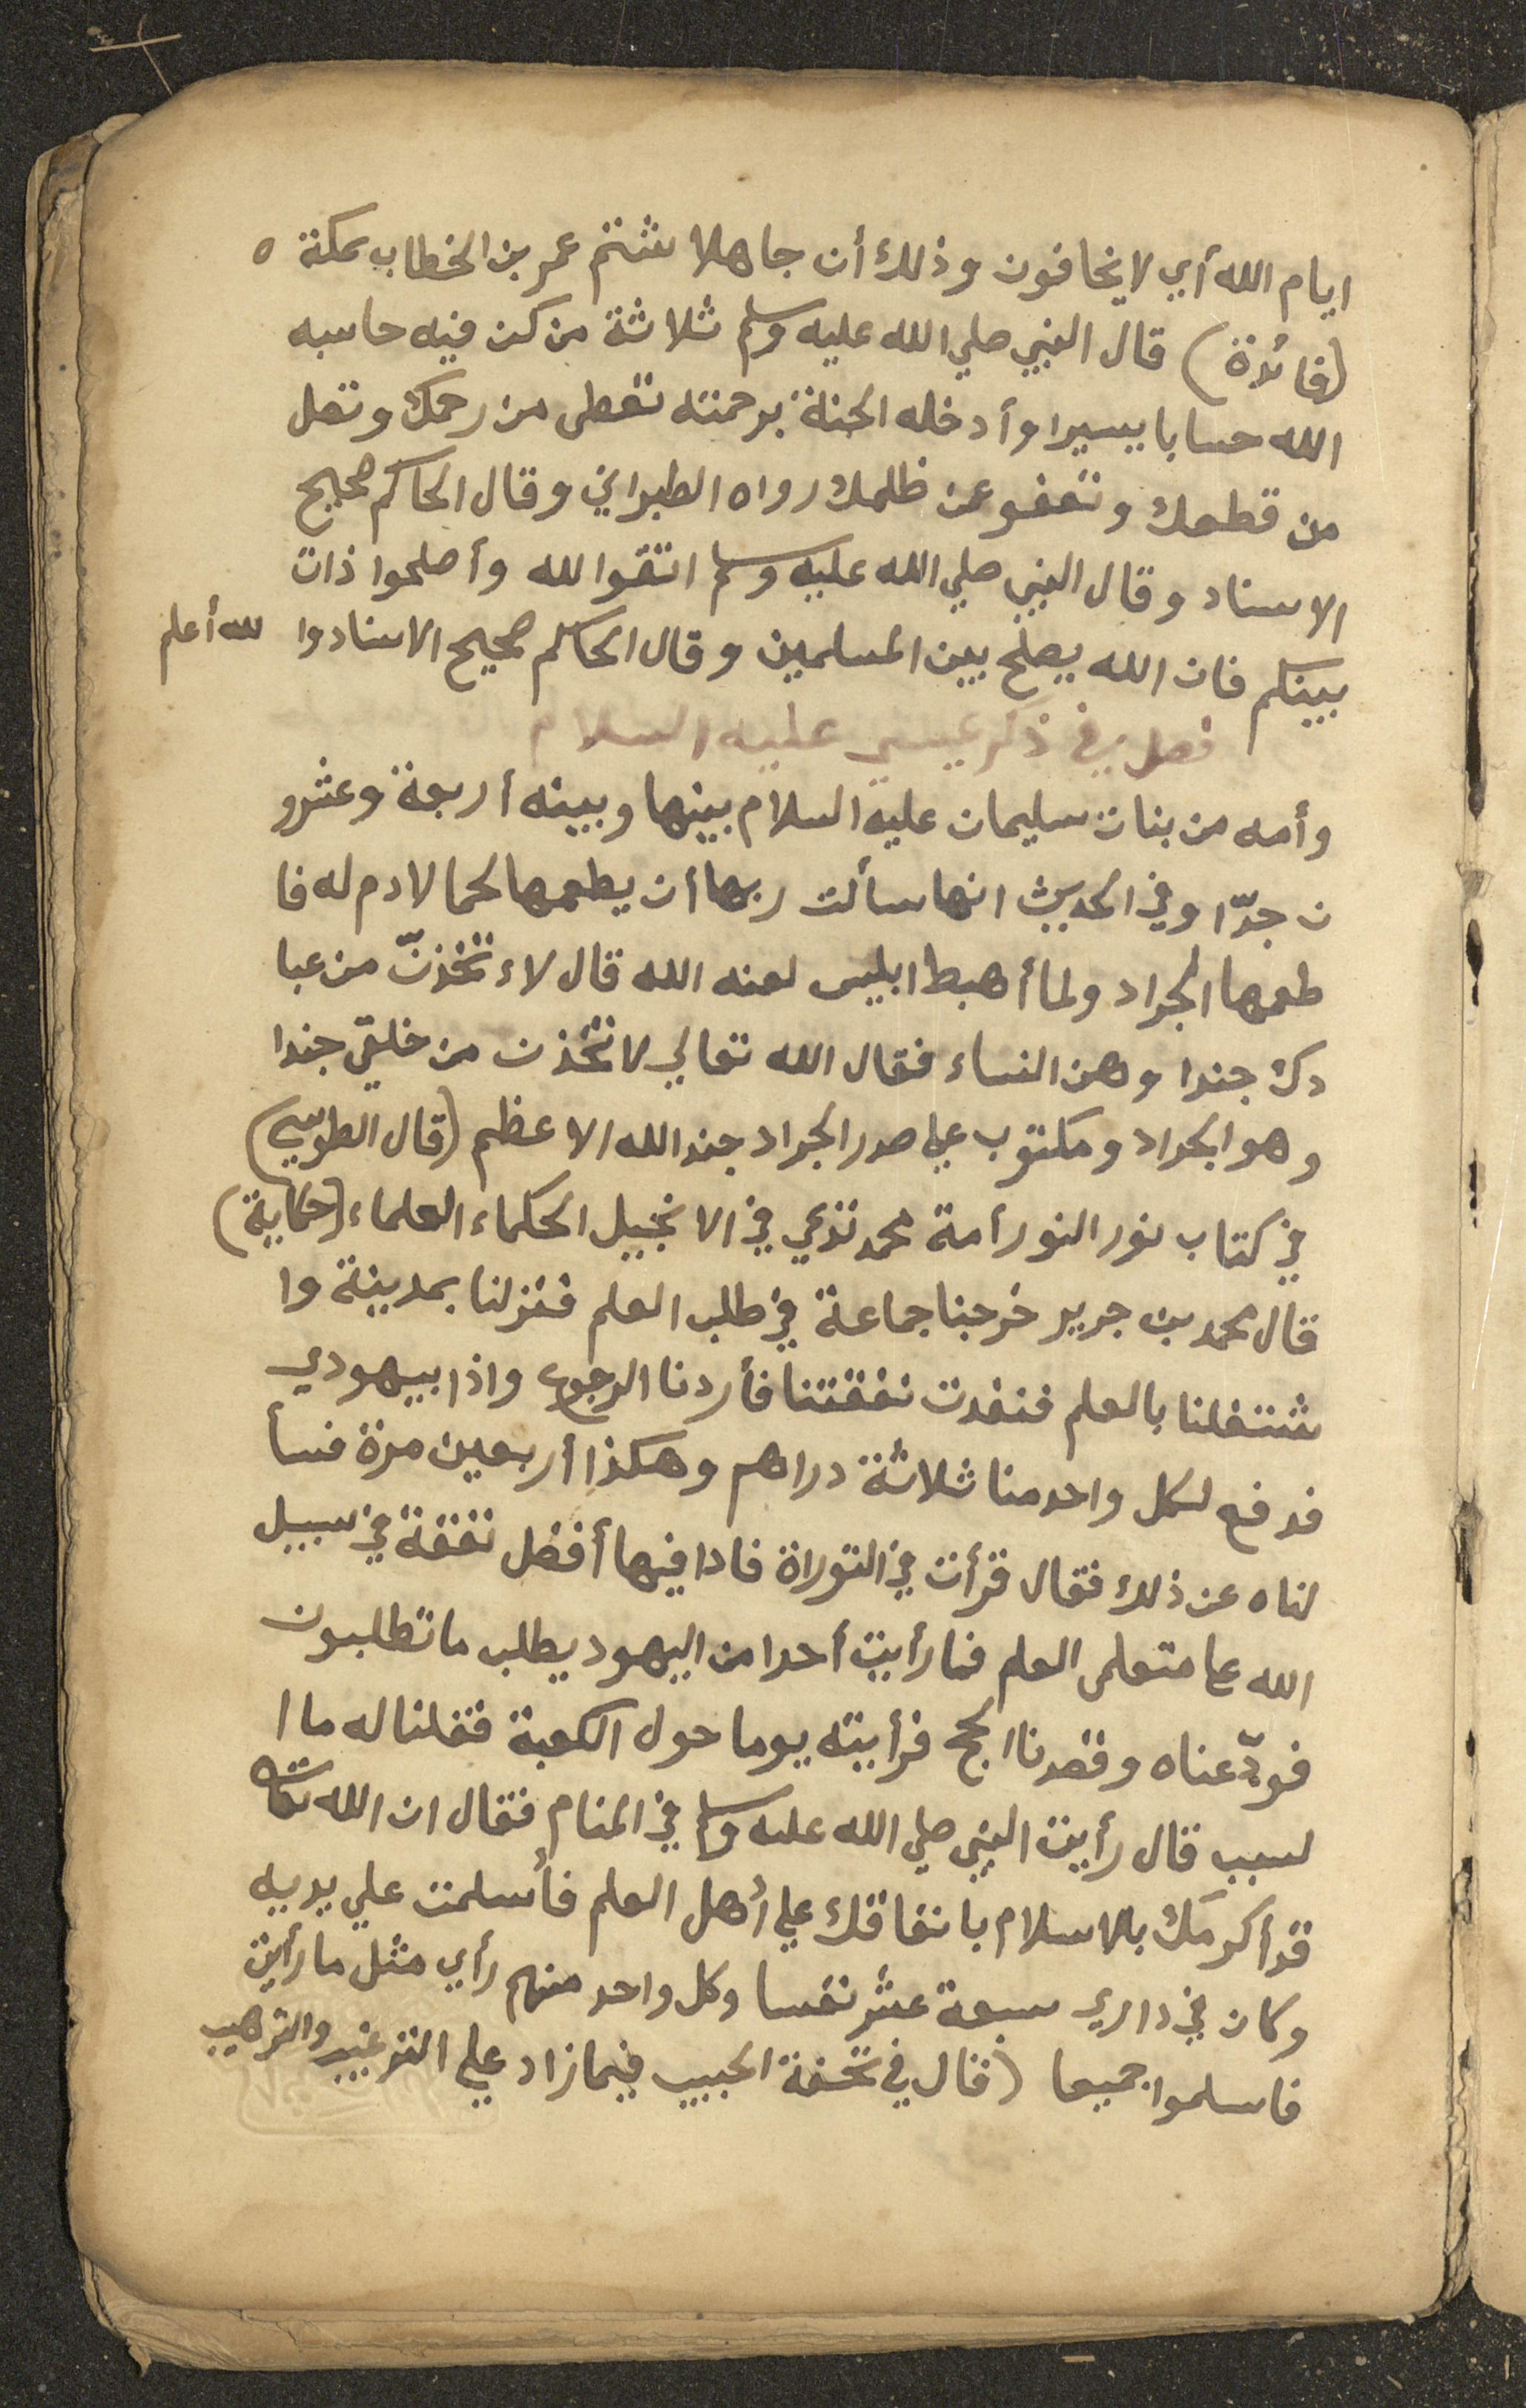 ايام الله أي لا يخافون وذلك أن جاهلا شتم عمر بن الخطاب بمكة ٥
(فائدة) قال النبي صلي الله عليه وسلم ثلاثة من كن فيه حاسبه
الله حسابا يسيرا وأدخله الجنة برحمته تعطى من رحمك وتصل
من قطعك وتعفو عن ظلمك رواه الطبراني وقال الحاكم صحيح
الاسناد وقال النبي صلي الله عليه وسلم اتقوا لله وأصلحوا ذات
بينكم فان الله يصلح بين المسلمين وقال الحاكم صحيح الاسناد وا لله أعلم
فصل في ذكر عيسي عليه السلام
وأمه من بنات سليمان عليه السلام بينها وبينه أربعة وعشرو
ن جدّا وفي الحديث انها سألت ربها أن يطعمها لحما لا دم له فا
طعمها الجراد ولما أهبط ابليس لعنه الله قال لاءتخذنّ من عبا
دك جندا وهن النساء فقال الله تعالي لاتخذن من خلقي جندا
وهو الجراد ومكتوب علي صدر الجراد جند الله الاعظم (قال الطوسي)
في كتاب نور النور أمة محمد تدعي في الانجيل الحكماء العلماء (حكاية)
قال محمد بن جرير خرجنا جماعة في طلب العلم فنزلنا بمدينة وا
شتغلنا بالعلم فنفدت نفقتنا فأردنا الرجوع واذا بيهودي
فدفع لكل واحد منا ثلاثة دراهم وهكذا أربعين مرة فسأ
لناه عن ذلك فقال قرأت في التوراة فاذا فيها أفضل نفقة في سبيل
الله علي متعلمى العلم فما رأيت أحدا من اليهود يطلب ما تطلبون
فودّعناه وقصدنا الحج فرأيته يوما حول الكعبة فقلنا له ما ا
لسبب قال رأيت النبي صلي الله عليه وسلم في المنام فقال ان الله تعالي
قد أكرمك بالاسلام بانفاقك علي أهل العلم فأسلمت علي يديه
وكان في داري سبعة عشر نفسا وكل واحد منهم رأي مثل ما رأيت
فاسلموا جميعا (قال في تحفة الحبيب فيما زاد علي الترغيب والترهيب